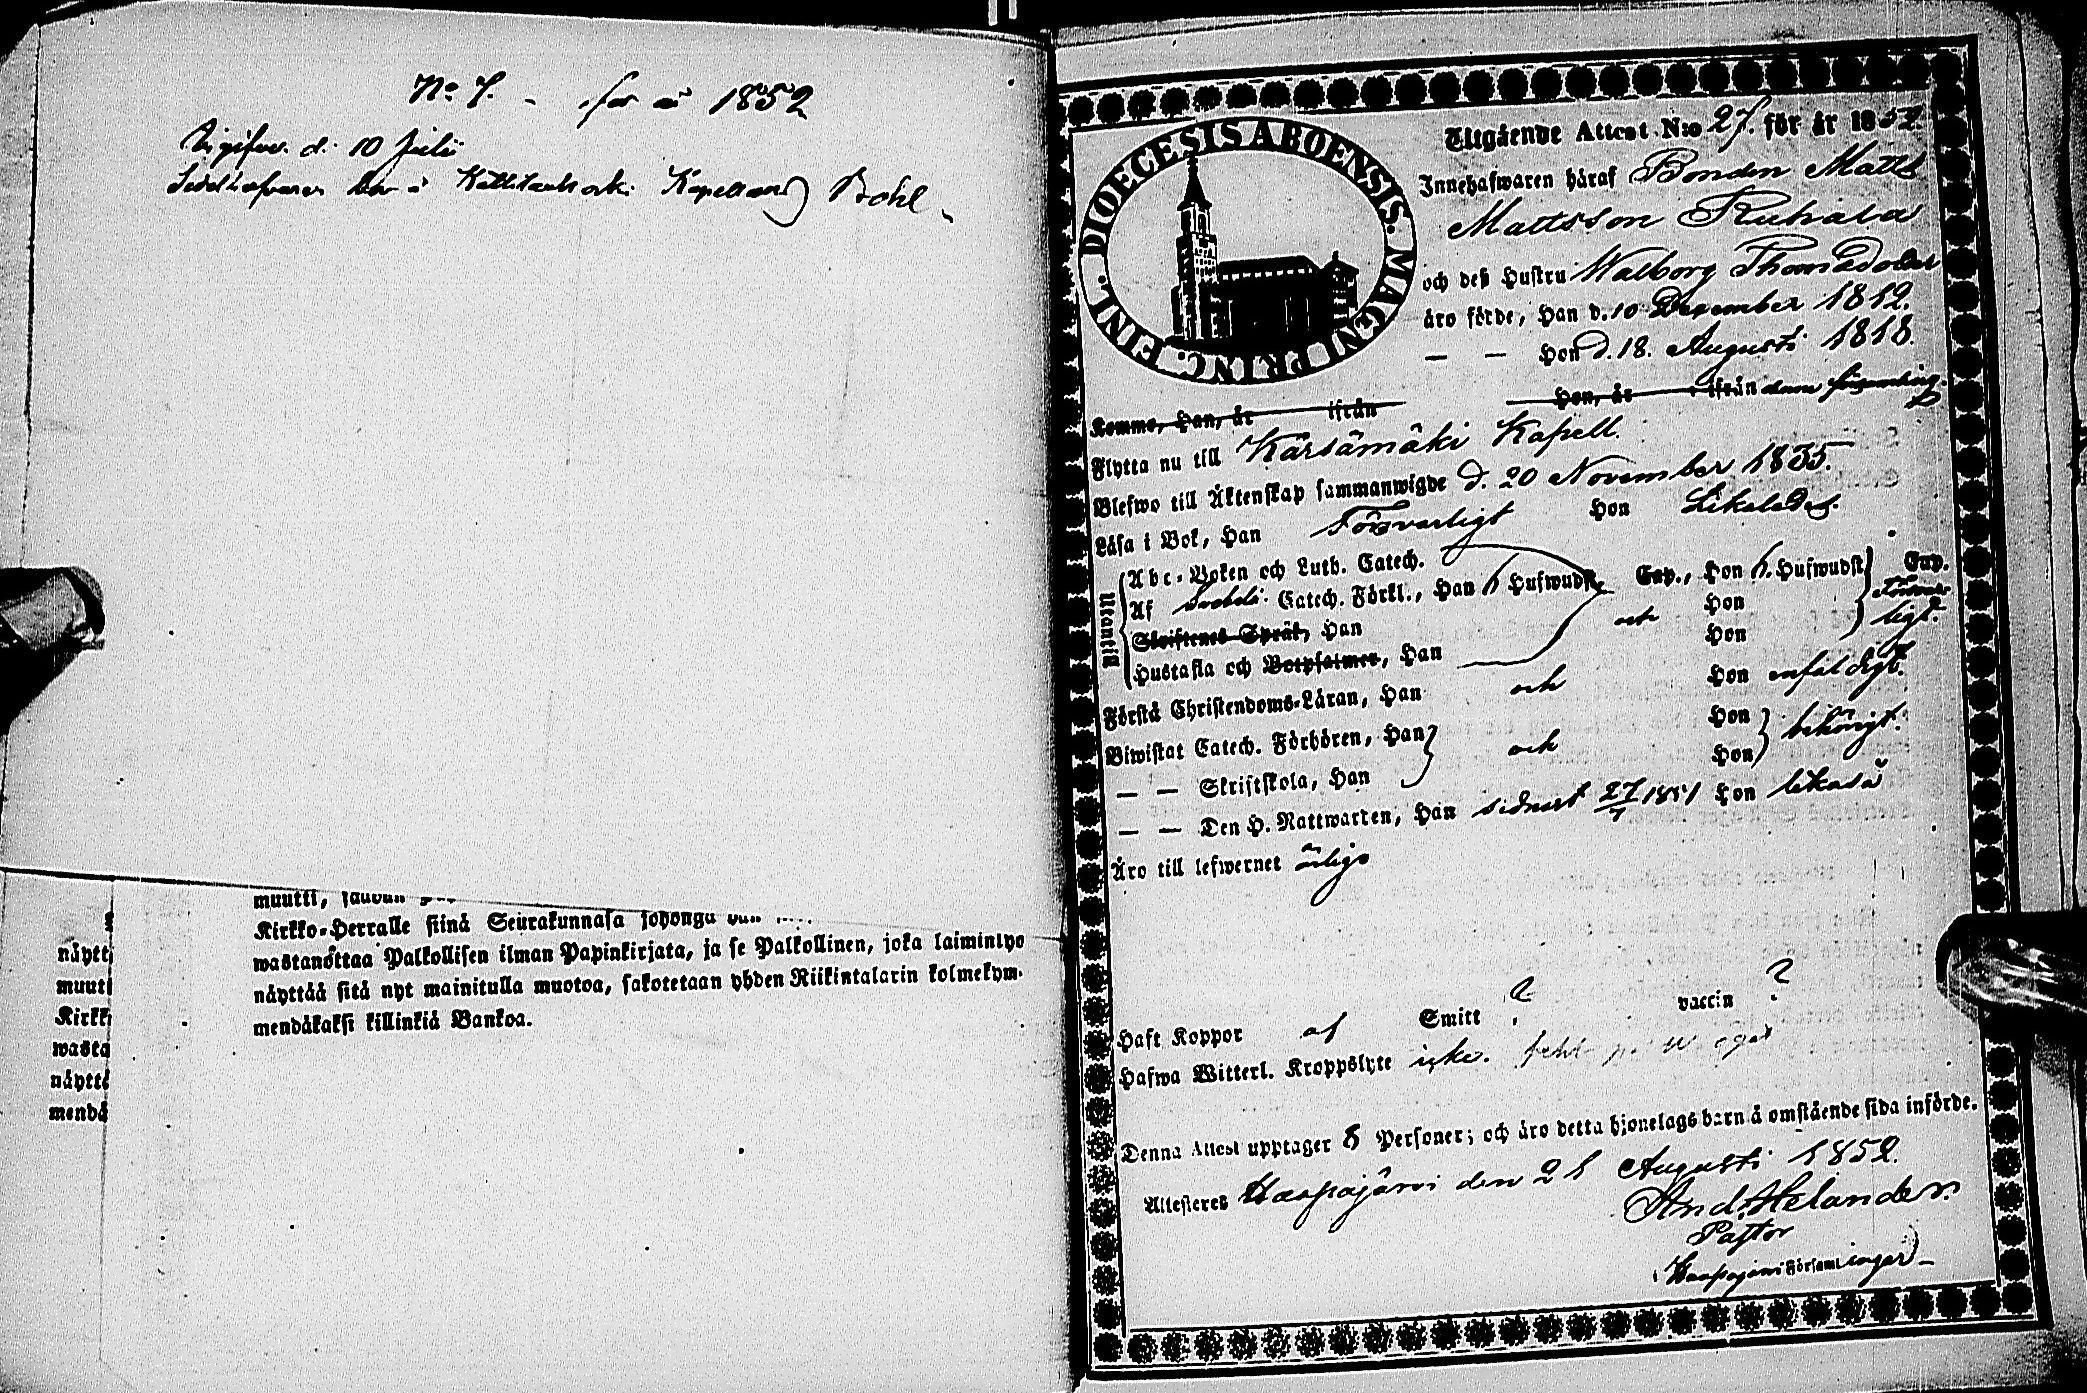 No 7. - för år 1852
d. 10 Julii
Kapellan
muutti,
Kirkko-Herralle siinä Seurakunnasa johonga
wastanottaa Palkollisen ilman Papinkirjata, ja se Palkollinen, joka laiminlyö
näyttää sitä nyt mainitulla muotoa, sakotetaan yhden Riikintalarin kolmekym-
mendäkaksi killinkiä Bankoa.
näytt
muut
Kirkk
wasta
näyttä
mendä
DIOECESIS ABOENSIS. MAGNI PRINC. FINL.
Utgående Attest N:o 27. för år 1852.
Innehafwaren häraf Bonden Matts
Mattsson Ruhala
och deß Hustru Walborg Thomasdotter
äro födde, Han d. 10 December 1812.
— — Hon d. 18. Augusti 1818.
Komne, Han, år ifrån Hon, år ifrån denna
Flytta nu till Kärsämäki Kapell.
Blefwo till Äktenskap sammanwigde d. 20 November 1835.
Läsa i Bok, Han Försvarligt Hon Likaledes.
Utantill
Abc-Boken och Luth. Catech.
Af Svebeli. Catech. Förkl., Han Hufwudst. Cap., Hon Hufwudst. Cap.
Skriftenes Språk, Han och Hon Försvarligt.
Hustafla och Botpsalmer, Han Hon
Förstå Christendoms-Läran, Han och Hon enfaldigt.
Biwistat Catech. Förhören, Han Hon
— — Skriftskola, Han och Hon behörigt.
— — Den H. Nattwarden, Han sidnast 27/7 1851 Hon likaså
Äro till lefwernet ärlige
Haft Koppor af Smitt ? vaccin ?
Hafwa Witterl. Kroppslyte icke.
Denna Attest upptager 8 Personer; och äro detta hjonelags barn å omstående sida införde.
Attesteres Haapajärvi den 21 Augusti 1852.
And. Helander.
Pastor
i Haapajärvi Församlingar